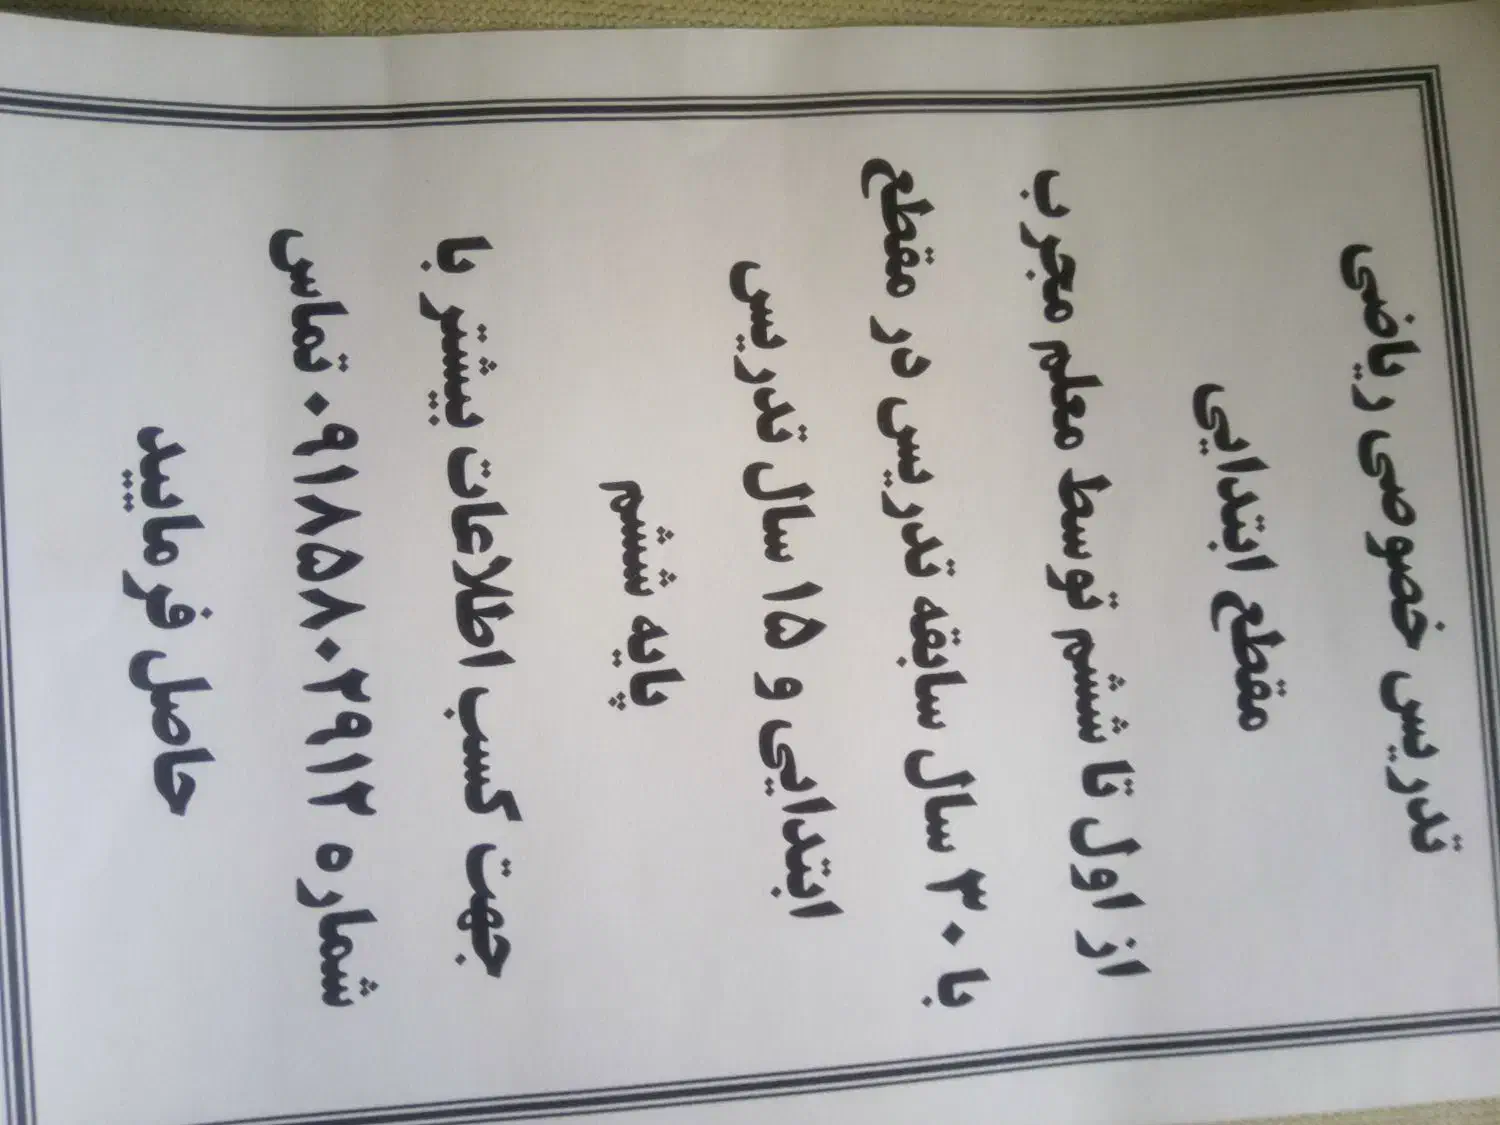 تدریس خصوصی ریاضی
مقطع ابتدایی
از اول تا ششم توسط معلم مجرب
با ۳۰ سال سابقه تدریس در مقطع
ابتدایی و ۱۵ سال تدریس
پایه ششم
جهت کسب اطلاعات بیشتر با
شماره ۰۹۱۸۵۸۸۰۲۹۱۲ تماس
حاصل فرمایید